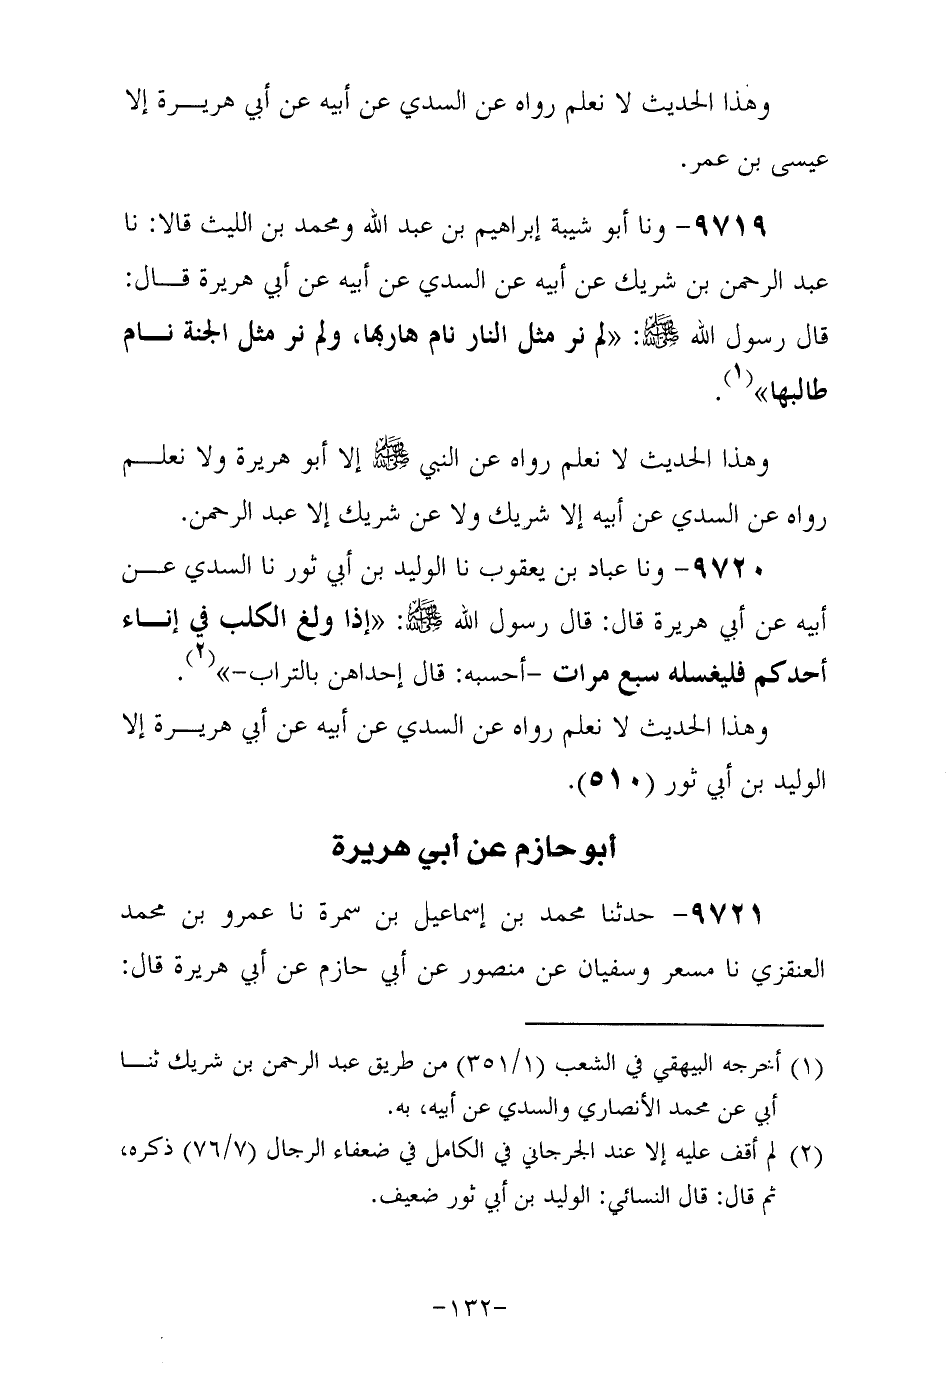 وهذا الحديث لا نعلم رواه عن السدي عن أبيه عن أبي هريـــرة إلا
عيسى بن عمر.
٩٧١٩- ونا أبو شيبة إبراهيم بن عبد الله ومحمد بن الليث قالا: نا
عبد الرحمن بن شريك عن أبيه عن السدي عن أبيه عن أبي هريرة قـــال:
قال رسول الله ﷺ: «لم نر مثل النار نام هاربها، ولم نر مثل الجنة نـــام
طالبها»(١).
وهذا الحديث لا نعلم رواه عن النبي ﷺ إلا أبو هريرة ولا نعلـــم
رواه عن السدي عن أبيه إلا شريك ولا عن شريك إلا عبد الرحمن.
٩٧٢٠- ونا عباد بن يعقوب نا الوليد بن أبي ثور نا السدي عـــن
أبيه عن أبي هريرة قال: قال رسول الله ﷺ: «إذا ولغ الكلب في إنـــاء
أحدكم فليغسله سبع مرات -أحسبه: قال إحداهن بالتراب-»(٢).
وهذا الحديث لا نعلم رواه عن السدي عن أبيه عن أبي هريـــرة إلا
الوليد بن أبي ثور (٥١٠).
أبو حازم عن أبي هريرة
٩٧٢١- حدثنا محمد بن إسماعيل بن سمرة نا عمرو بن محمد
العنقزي نا مسعر وسفيان عن منصور عن أبي حازم عن أبي هريرة قال:
(١) أخرجه البيهقي في الشعب (٣٥١/١) من طريق عبد الرحمن بن شريك ثنـــا
أبي عن محمد الأنصاري والسدي عن أبيه، به.
(٢) لم أقف عليه إلا عند الجرجاني في الكامل في ضعفاء الرجال (٧٦/٧) ذكره،
ثم قال: قال النسائي: الوليد بن أبي ثور ضعيف.
-١٣٢-